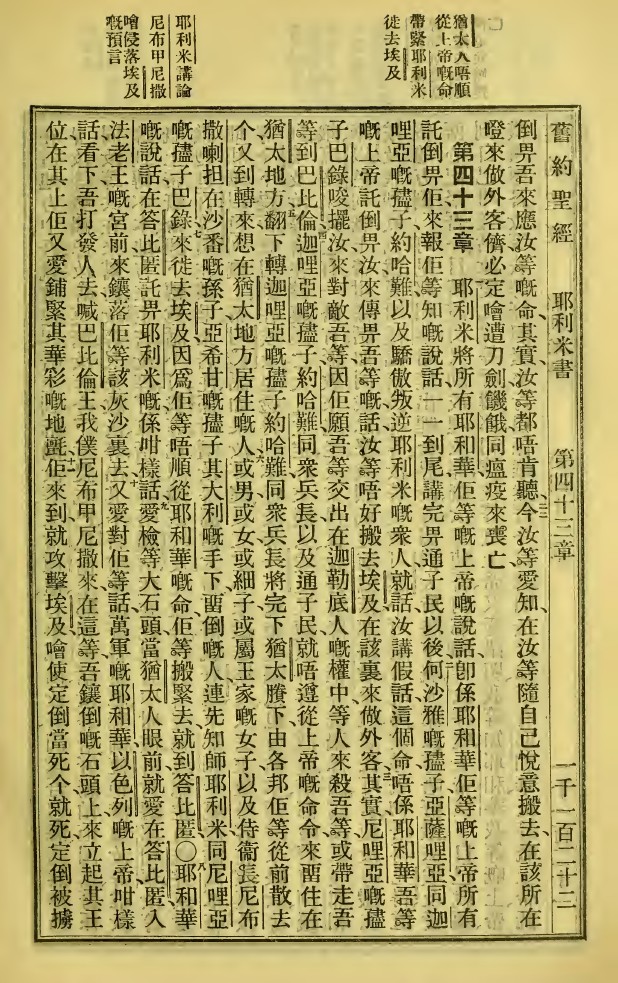 猶太人唔順
從上帝嘅命
帶緊耶利米
徙去埃及
耶利米講論
尼布甲尼撒
噲侵落埃及
嘅預言
舊約聖經 耶利米書 第四十三章 一千一百二十二
倒畀吾來應汝等嘅命、其實汝等都唔肯聽、今汝等愛知、在汝等隨自己悅意搬去在該所在
噔來做外客儕、必定噲遭刀劍饑餓同瘟疫來喪亡、
第四十三章 耶利米將所有耶和華佢等嘅上帝嘅說話、卽係耶和華佢等嘅上帝所有
託倒畀佢來報佢等知嘅說話、一一到尾講完畀通子民以後、何沙雅嘅孻子亞薩哩亞同迦
哩亞嘅孻子約哈難、以及驕傲叛逆耶利米嘅衆人、就話汝講假話、這個命唔係耶和華吾等
嘅上帝託倒畀汝來傳畀吾等嘅話、汝等唔好搬去埃及在該裏來做外客、其實尼哩亞嘅孻
子巴錄唆擺汝來對敵吾等、因佢願吾等交出在迦勒底人嘅權中、等人來殺吾等、或帶走吾
等到巴比倫、迦哩亞嘅孻子約哈難、同衆兵長、以及通子民、就唔遵從上帝嘅命令來畱住在
猶太地方、翻下轉迦哩亞嘅孻子約哈難、同衆兵長、將完下猶太賸下由各邦佢等從前散去
个又到轉來想在猶太地方居住嘅人、或男或女或細子、或屬王家嘅女子、以及侍衞長尼布
撒喇担在沙番嘅孫子亞希甘嘅孻子其大利嘅手下畱倒嘅人、連先知師耶利米、同尼哩亞
嘅孻子巴錄、來徙去埃及、因爲佢等唔順從耶和華嘅命、佢等搬緊去、就到答比匿、○耶和華
嘅說話在答比匿託畀耶利米嘅、係咁樣話、愛檢等大石頭、當猶太人眼前、就愛在答比匿入
法老王嘅宮前、來鑲落佢等該灰沙裏去、又愛對佢等話、萬軍嘅耶和華以色列嘅上帝咁樣
話、看下、吾打發人去喊巴比倫王我僕尼布甲尼撒來、在這等吾鑲倒嘅石頭上、來立起其王
位、在其上佢又愛鋪緊其華彩嘅地氈、佢來到就攻擊埃及、噲使定倒當死个就死、定倒被擄